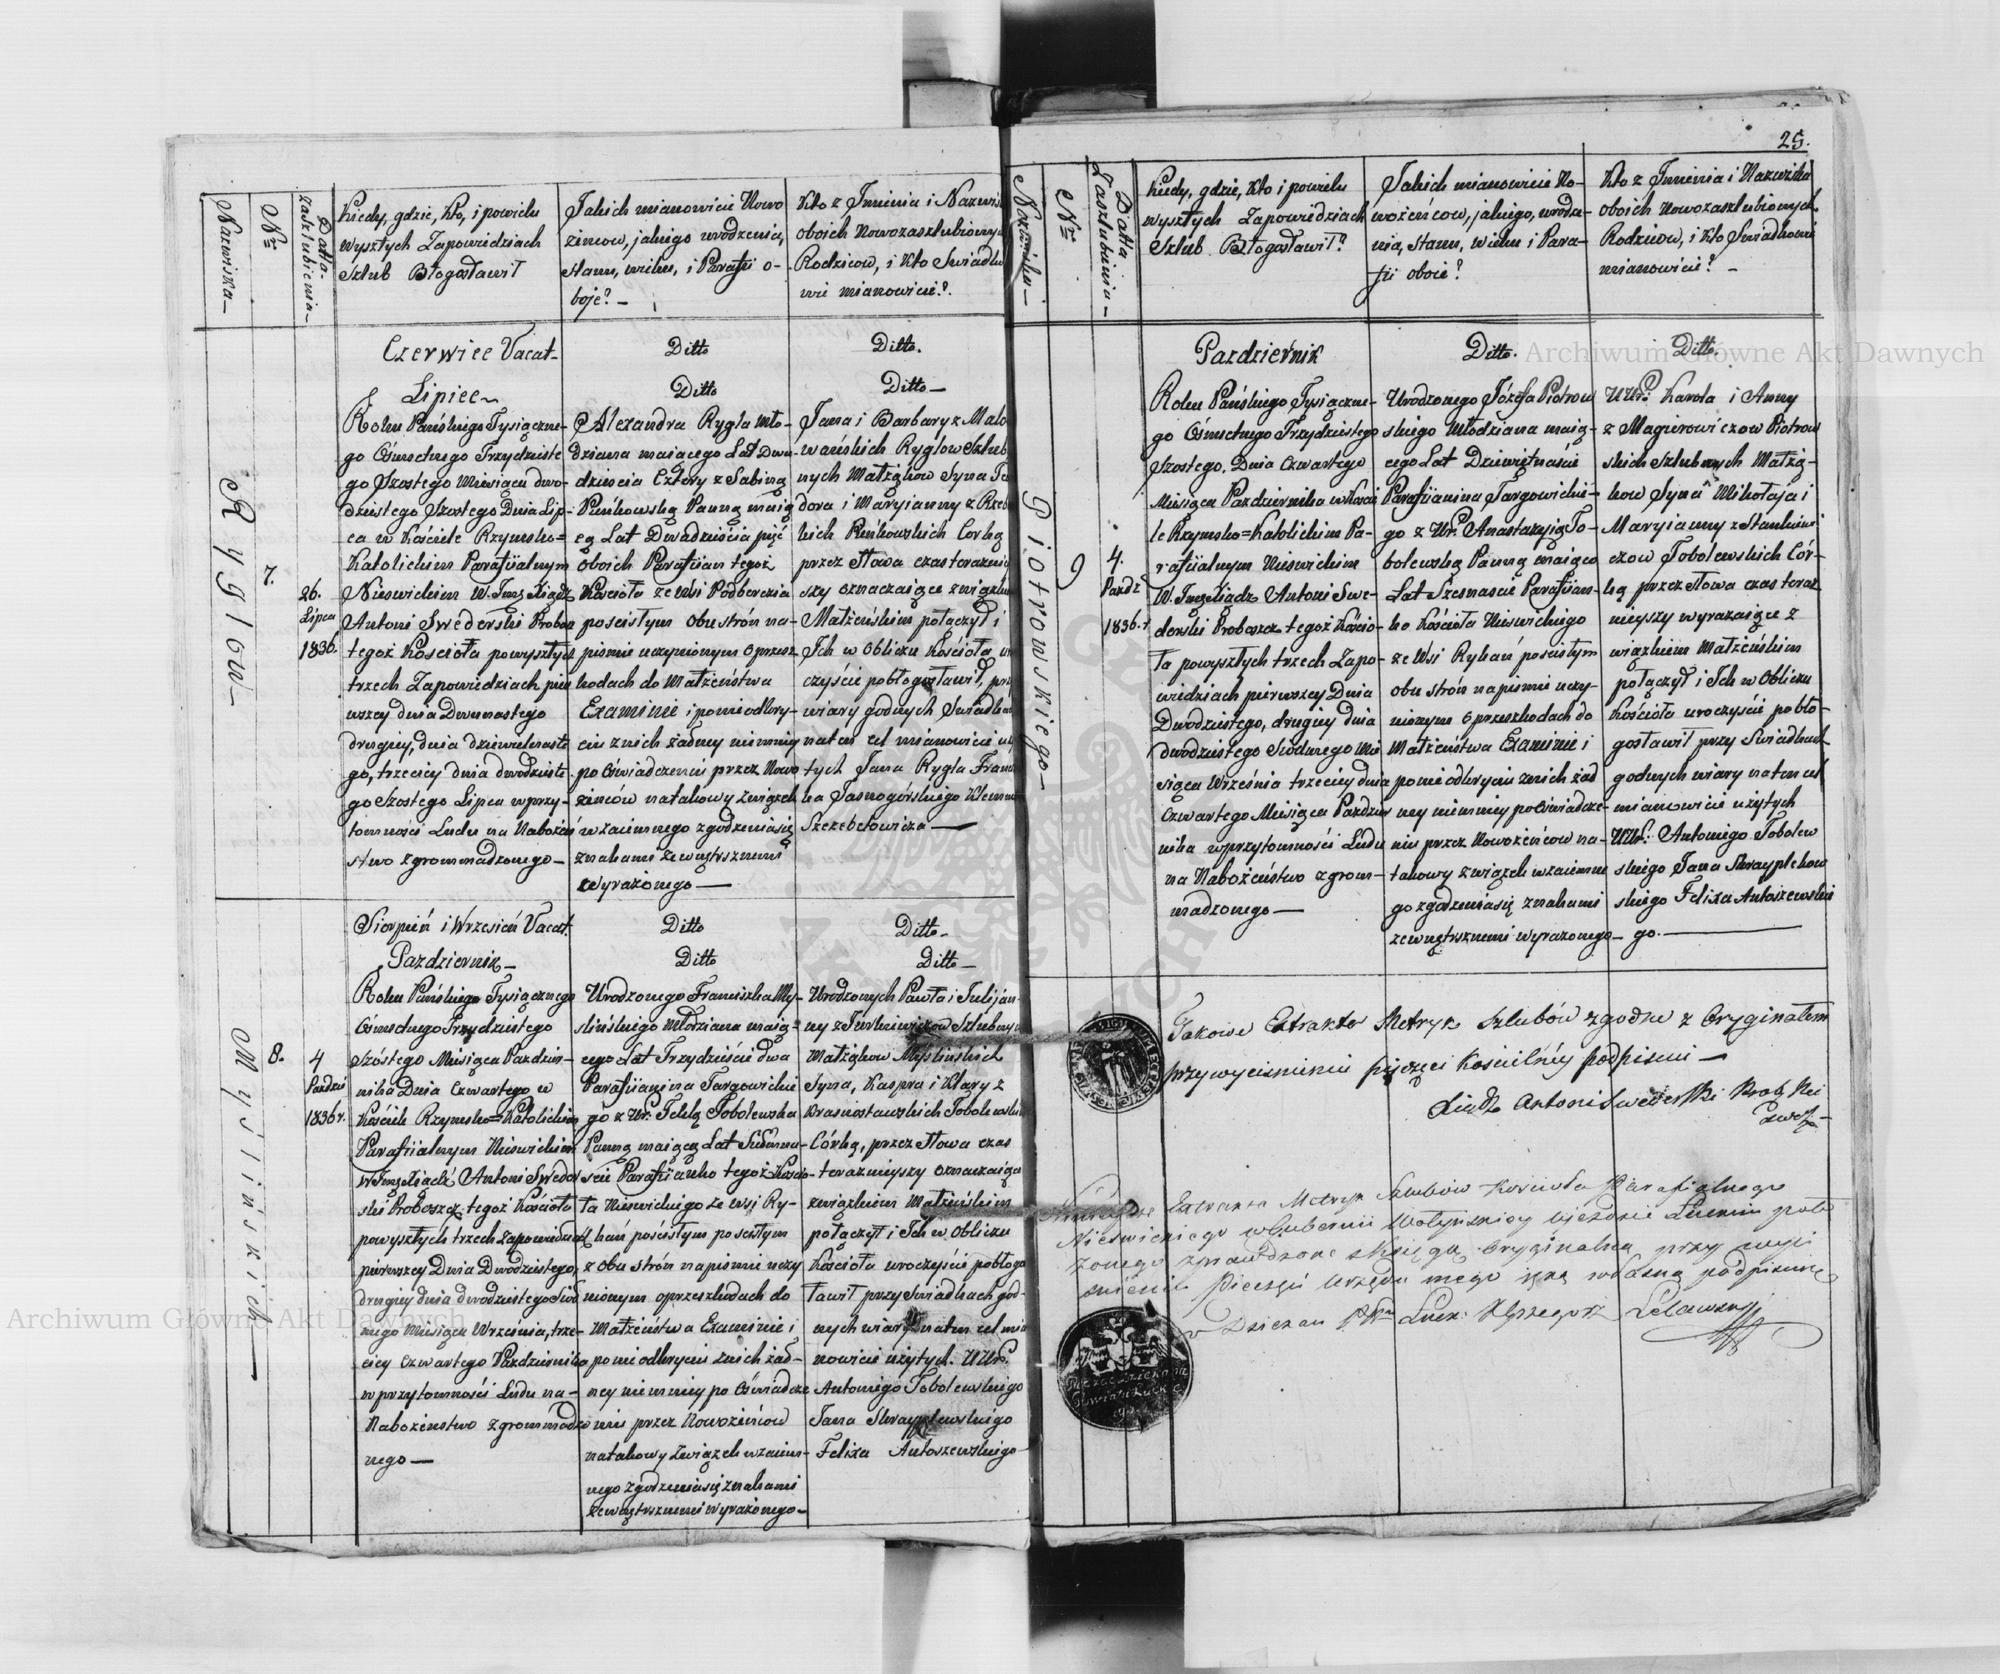 25.
Nazwiska
Nr
Datta Zaszlubienia
Kiedy, gdzie, Kto, i powielu
wyszłych Zapowiedziach
Szlub Błogosławił
Jakich mianowicie Nowo
zincow, jakiego urodzenia,
stanu, wieku, i Parafii o-
boje? –
Kto z Imienia i Nazwis
oboich Nowozaszlubiony
Rodzicow, i Kto Swiadko
wie mianowicie?
Czerwiec Vacat
Ditto
Ditto.
Lipiec
Ditto
Ditto –
Ryglow
7.
26.
Lipca
1836.
Roku Pańskiego Tysiączne-
go Osmsetnego Trzydzieste
go Szostego Miesiąca dwo-
dziestego Szostego Dnia Lip-
ca w Kościele Rzymsko=
Katolickim Parafijalnym
Nieswickim W. Imz Xiądz
Antoni Swederski Probos
tegoż Kościoła powyszłych
trzech Zapowiedziach pier
wszey dnia Dwunastego
drugiey, dnia dziewietnaste
go, trzeciey dnia dwodzieste
go Szostego Lipca w przy-
tomności Ludu na Nabożeń
stwo zgrommadzonego –
Alexandra Rygla mło-
dziana maiącego Lat Dwa-
dziescia Cztery z Sabiną
Pieńkowską Panną maią
cą Lat Dwadzieścia pięć
oboich Parafijan tegoż
Kościoła ze Wsi Podberezia
poscisłym obu strón na-
piśmie uczynionym o przesz
kodach do Małżeństwa
Examinie i ponieodkry-
ciu z nich żadney niemniey
po Oświadczeniu przez Nowo
żeńców natakowy Związek
wzaiemnego zgodzeniasię
znakami zewnętrznemi
wyrażonego –
Jana i Barbary z Malo
wańskich Ryglow Szlub
nych Małżąkow Syna Ta
dora i Maryianny z Rzeb
kich Pieńkowskich Corką
przez słowa czas teraźniey
szy oznaczaiące związkiem
Małżeńskim połączył i
Ich w Obliczu Kościoła u
czyście pobłogosławił, przy
wiary godnych Swiadkach
naten cel mianowicie u
tych Jana Rygla Fran
ka Jasnogórskiego Klemen
Szczebetowicza –
Sierpień i Wrzesień Vacat.
Ditto
Ditto.
Pazdziernik –
Ditto
Ditto –
Myslinskich
8.
4
Pazdzier
1836 r.
Roku Pańskiego Tysiącznego
Osmsetnego Trzydziestego
Szóstego Miesiąca Pazdzier-
nika Dnia Czwartego w
Kościele Rzymsko=Katolickim
Parafijalnym Nieswickim
W Imz Xiądz Antoni Sweder
ski Proboszcz tegoż Kościoła
powyszłych trzech Zapowiedziach
pierwszey Dnia Dwodziestego,
drugiey dnia dwodziestego Siod
mego Miesiąca Września, trze-
ciey Czwartego Pazdziernika
w przytomności Ludu na-
Nabożenstwo zgrommadzo
nego –
Urodzonego Franciszka My-
slińskiego Młodziana maią-
cego Lat Trzydzieści dwa
Parafijanina Targowickie
go z Ur. Teklą Tobolewską
Panną maiącą Lat Siedmna-
ście Parafijanko tegoż Koscio-
ła Nieswickiego ze wsi Ry-
kań poscisłym poszłym
z obu strón napismie uczy
nionym oprzeszkodach do
Małżeństwa Examinie i
ponieodkryciu znich żad-
ney niemniey po Oświadcze
niu przez Nowożeńcow
natakowy Związek wzaiem-
nego zgodzeniasię znakami
zewnętrznemi wyrażonego –
Urodzonych Pawła i Julijan-
ny z Turkiewiczow Szlubny
Małżąkow Myslinskich
Syna, Kaspra i Klary z
Krasnosławskich Tobolewskich
Córką, przez Słowa czas
teraznieyszy oznaczaiące
związkiem Małżeńskim
połączył i Ich w Obliczu
Kościoła uroczyście pobłogo
sławił przy Swiadkach god-
nych wiary naten cel mia
nowicie użytych. UUr.
Antoniego Tobolewskiego
Jana Skrayplewskiego
Felixa Antoszewskiego
Nazwisko –
Nr
Datta Zaszlubienia –
Kiedy, gdzie, Kto i powielu
wyszłych Zapowiedziach
Szlub Błogosławił?
Jakich mianowicie No-
wożeńcow, jakiego, urodze-
nia, Stanu, wieku i Para-
fii oboie?
Kto z Imienia i Nazwiska
oboich Nowozaszlubionych
Rodzicow, i Kto Swiadkowie
mianowicie? –
Pazdziernik
Ditto.
Ditto.
Piotrowskiego
9
4.
Pazdz
1836. r
Roku Pańskiego Tysiączne-
go Osmsetnego Trzydziestego
Szostego. Dnia Czwartego
Miesiąca Pazdziernika w Koscie
le Rzymsko=Katolickim Pa-
rafijalnym Nieswickim
W. Imz Xiądz Antoni Swe-
derski Proboszcz tegoż Kościo-
ła powyszłych trzech Zapo-
wiedziach pierwszey Dnia
Dwodziestego, drugiey dnia
dwodziestego Siodmego Mie
siąca Września trzeciey dnia
Czwartego Miesiąca Pazdzier
nika w przytomności Ludu
na Nabożeństwo zgrom-
madzonego –
Urodzonego Józefa Piotrow
skiego Młodziana maią-
cego Lat Dziewiętnaście
Parafijanina Targowickie-
go z Ur. Anastazyią To-
bolewską Panną maiąco
Lat Szesnascie Parafijan-
ko Kościoła Nieswickiego
ze Wsi Rykań poscisłym
obu strón napismie uczy-
nionym oprzeszkodach do
Małżeństwa Examinie i
ponieodkryciu znich żad
ney niemniey po Oświadcze-
niu przez Nowożeńcow na-
takowy związek wzaiemne
go zgodzeniasię znakami
zewnętrznemi wyrażonego –
UUr. Karola i Anny
z Magierowiczow Piotrow
skich Szlubnych Małżą-
kow Syna Mikołaja i
Maryianny z Stankiewi
czow Tobolewskich Cór-
ką przez słowa czas teraz
nieyszy wyrazaiące z
wiązkiem Małżeńskim
połączył i Ich w Obliczu
Kościoła uroczyście pobło-
gosławił przy Swiadkach
godnych wiary naten cel
mianowicie użytych
UUr. Antoniego Tobolew
skiego Jana Skrayplekow
skiego Felixa Antoszewskie
go. –
Takowe Extrakta Metryk Szlubów zgodne z Oryginałem
przy wyciśnieniu pięczęci Kościelnéy podpisuie –
Xiądz Antoni Swederski Prob. Nie
Extrakta Metryk Szlubów Koscioła Parafialnego
Nieświckiego w Gubernii Wołyńskiey Ujezdzie Łuckim poło
zonego zprawdzone z Księgą Oryginalną przy wyci
śnieniu Pieczęci Urzędu mego ręką własną podpisuię
Dziekan
Archiwum Główne Akt Dawnych
Archiwum Główne Akt Dawnych